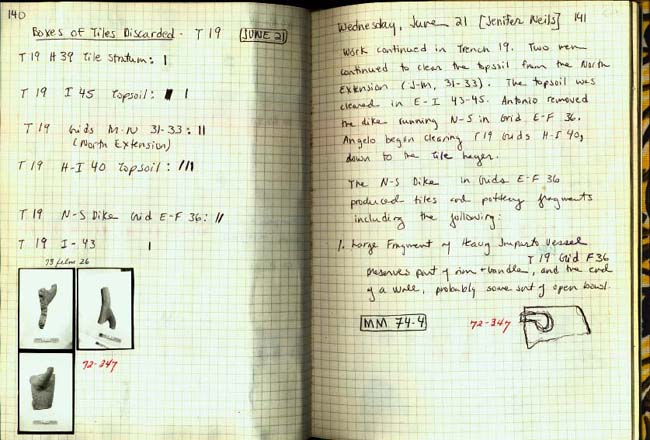 140
Boxes of Tiles Discarded - T 19 JUNE 21
T 19 H 39 Tile Stratum: I
T 19 I 45 Topsoil: I
T 19 Grids M-N 31-33: II
(North Extension)
T 19 H-I 40 Topsoil: III
T 19 N-S Dike Grid E-F 36: II
T 19 I-43 I
73 film 26
72-347
Wednesday, June 21 [Jenifer Neils] 141
Work continued in Trench 19. Two men
continued to clear the topsoil from the North
Extension (J-M, 31-33). The topsoil was
cleared in E-I 43-45. Antonio removed
the dike running N-S in Grid E-F 36.
Angelo began clearing T 19 Grids H-I 40,
down to the tile layer.
The N-S Dike in Grids E-F 36
produced tiles and pottery fragments
including the following:
1. Large Fragment of Heavy Impasto Vessel
T 19 Grid F36
Preserves part of rim + handle, and the end
of a wall, probably some sort of open bowl.
MM 74-4 72-347